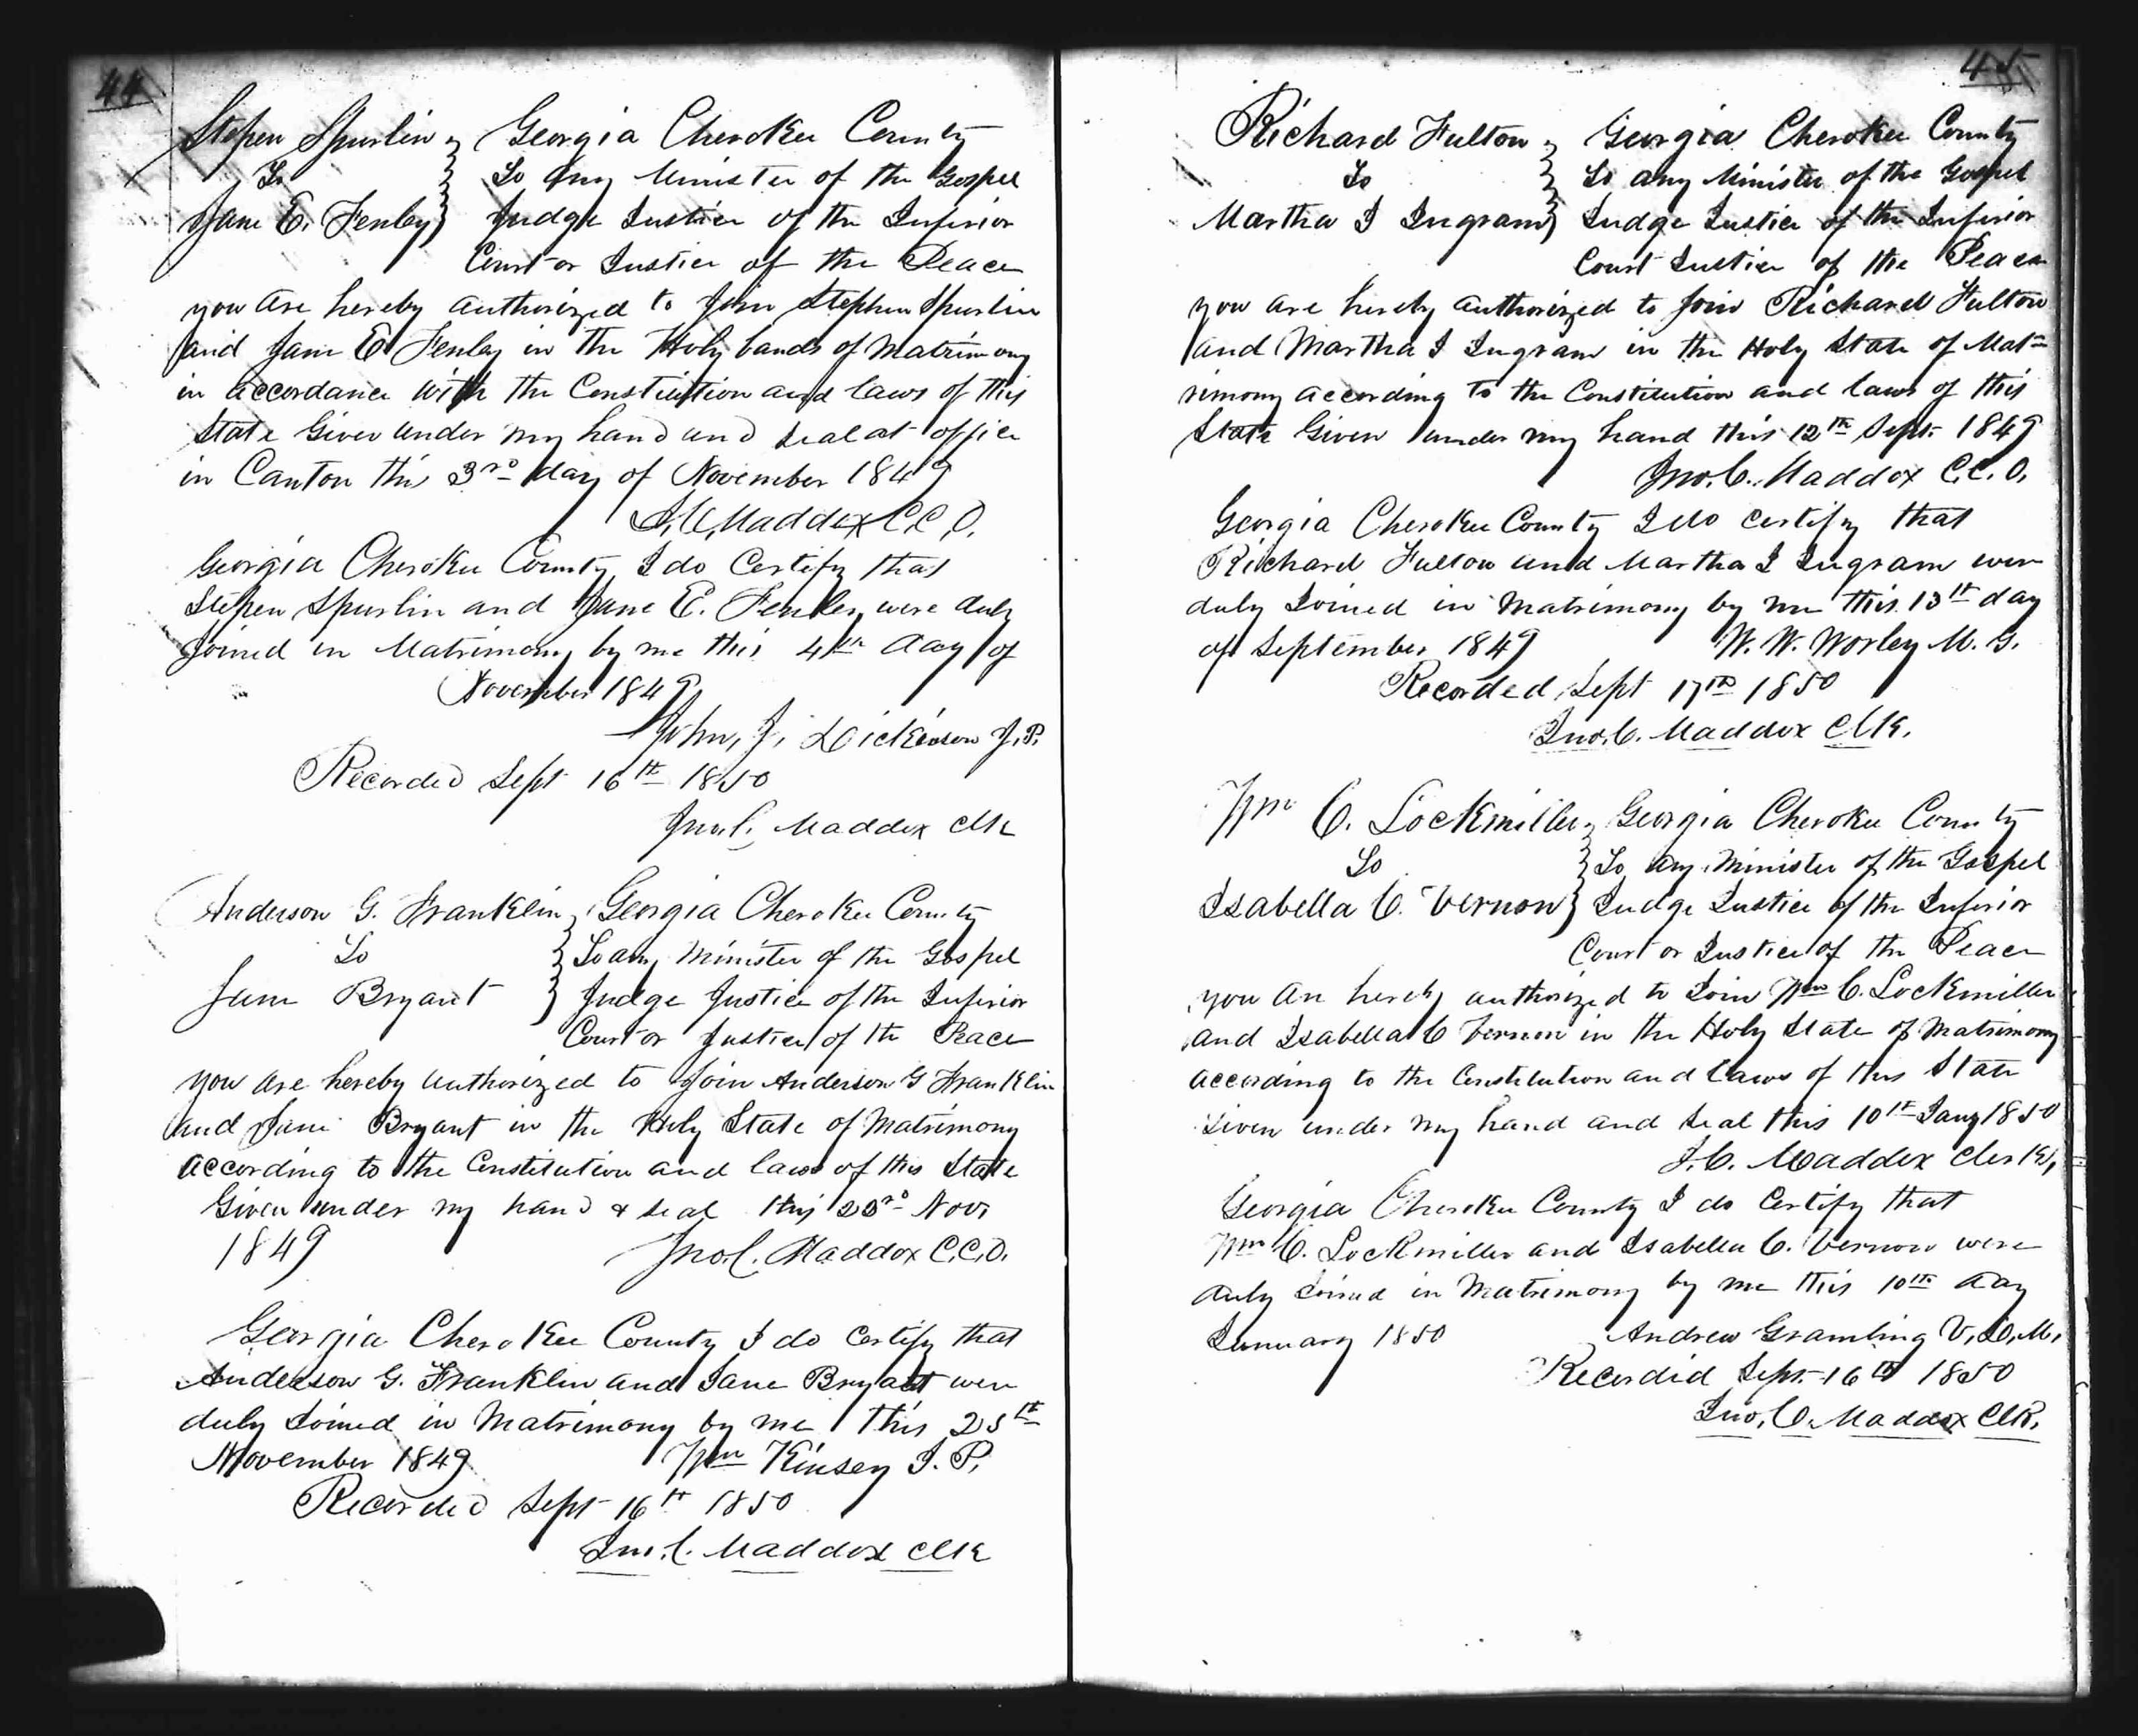 44
Stepen Spurlin Georgia Cherokee County
To To any Minister of the Gospel
Jane E. Fenley Judge Justice of the Inferior
Court or Justice of the Peace
you are hereby authorized to Join Stephen Spurlin
and Jane E Fenley in the Holy bands of Matrimony
in accordance with the Constitution and laws of this
State Given under my hand and seal at office
in Canton this 3rd day of November 1849
J. C. Maddox C.C.O.
Georgia Cherokee County I do Certify that
Stepen Spurlin and Jane E. Fenley were duly
Joined in Matrimony by me this 4th day of
November 1849
John, J, Dickinson J.P.
Recorded Sept 16th 1850
Jno. C. Maddox Clk
Anderson G. Franklin Georgia Cherokee County
To To any Minister of the Gospel
Jane Bryant Judge Justice of the Inferior
Court or Justice of the Peace
you are hereby authorized to Join Anderson G Franklin
and Jane Bryant in the Holy State of Matrimony
According to the Constitution and laws of this State
Given under my hand & seal this 23rd Nov.
1849 Jno. C. Maddox C.C.O.
Georgia Cherokee County I do certify that
Anderson G. Franklin and Jane Bryant were
duly Joined in Matrimony by me this 25th
November 1849 Wm Kinsey J. P.
Recorded Sept 16th 1850
Jno. C. Maddox Clk
45
Richard Fulton Georgia Cherokee County
To To any Minister of the Gospel
Martha J Ingram Judge Justice of the Inferior
Court Justice of the Peace
you are hereby authorized to Join Richard Fulton
and Martha J Ingram in the Holy State of Mat=
rimony according to the Constitution and laws of this
State Given under my hand this 12th Sept. 1849
Jno. C. Maddox C.C.O.
Georgia Cherokee County I do certify that
Richard Fulton and Martha J Ingram were
duly Joined in Matrimony by me this 13th day
of September 1849 W. W. Worley M. G.
Recorded Sept 17th 1850
Jno. C. Maddox Clk.
Wm C. Lockmiller Georgia Cherokee County
To To any Minister of the Gospel
Isabella C. Vernon Judge Justice of the Inferior
Court or Justice of the Peace
you are hereby authorized to Join Wm C. Lockmiller
and Isabella C Vernon in the Holy State of Matrimony
according to the Constitution and Laws of this State
Given under my hand and seal this 10th Jany 1850
J. C. Maddox Clerk,
Georgia Cherokee County I do Certify that
Wm C. Lockmiller and Isabella C. Vernon were
duly Joined in Matrimony by me this 10th day
January 1850 Andrew Grambling V, D, M,
Recordid Sept. 16th 1850
Jno, C. Maddox Clk.